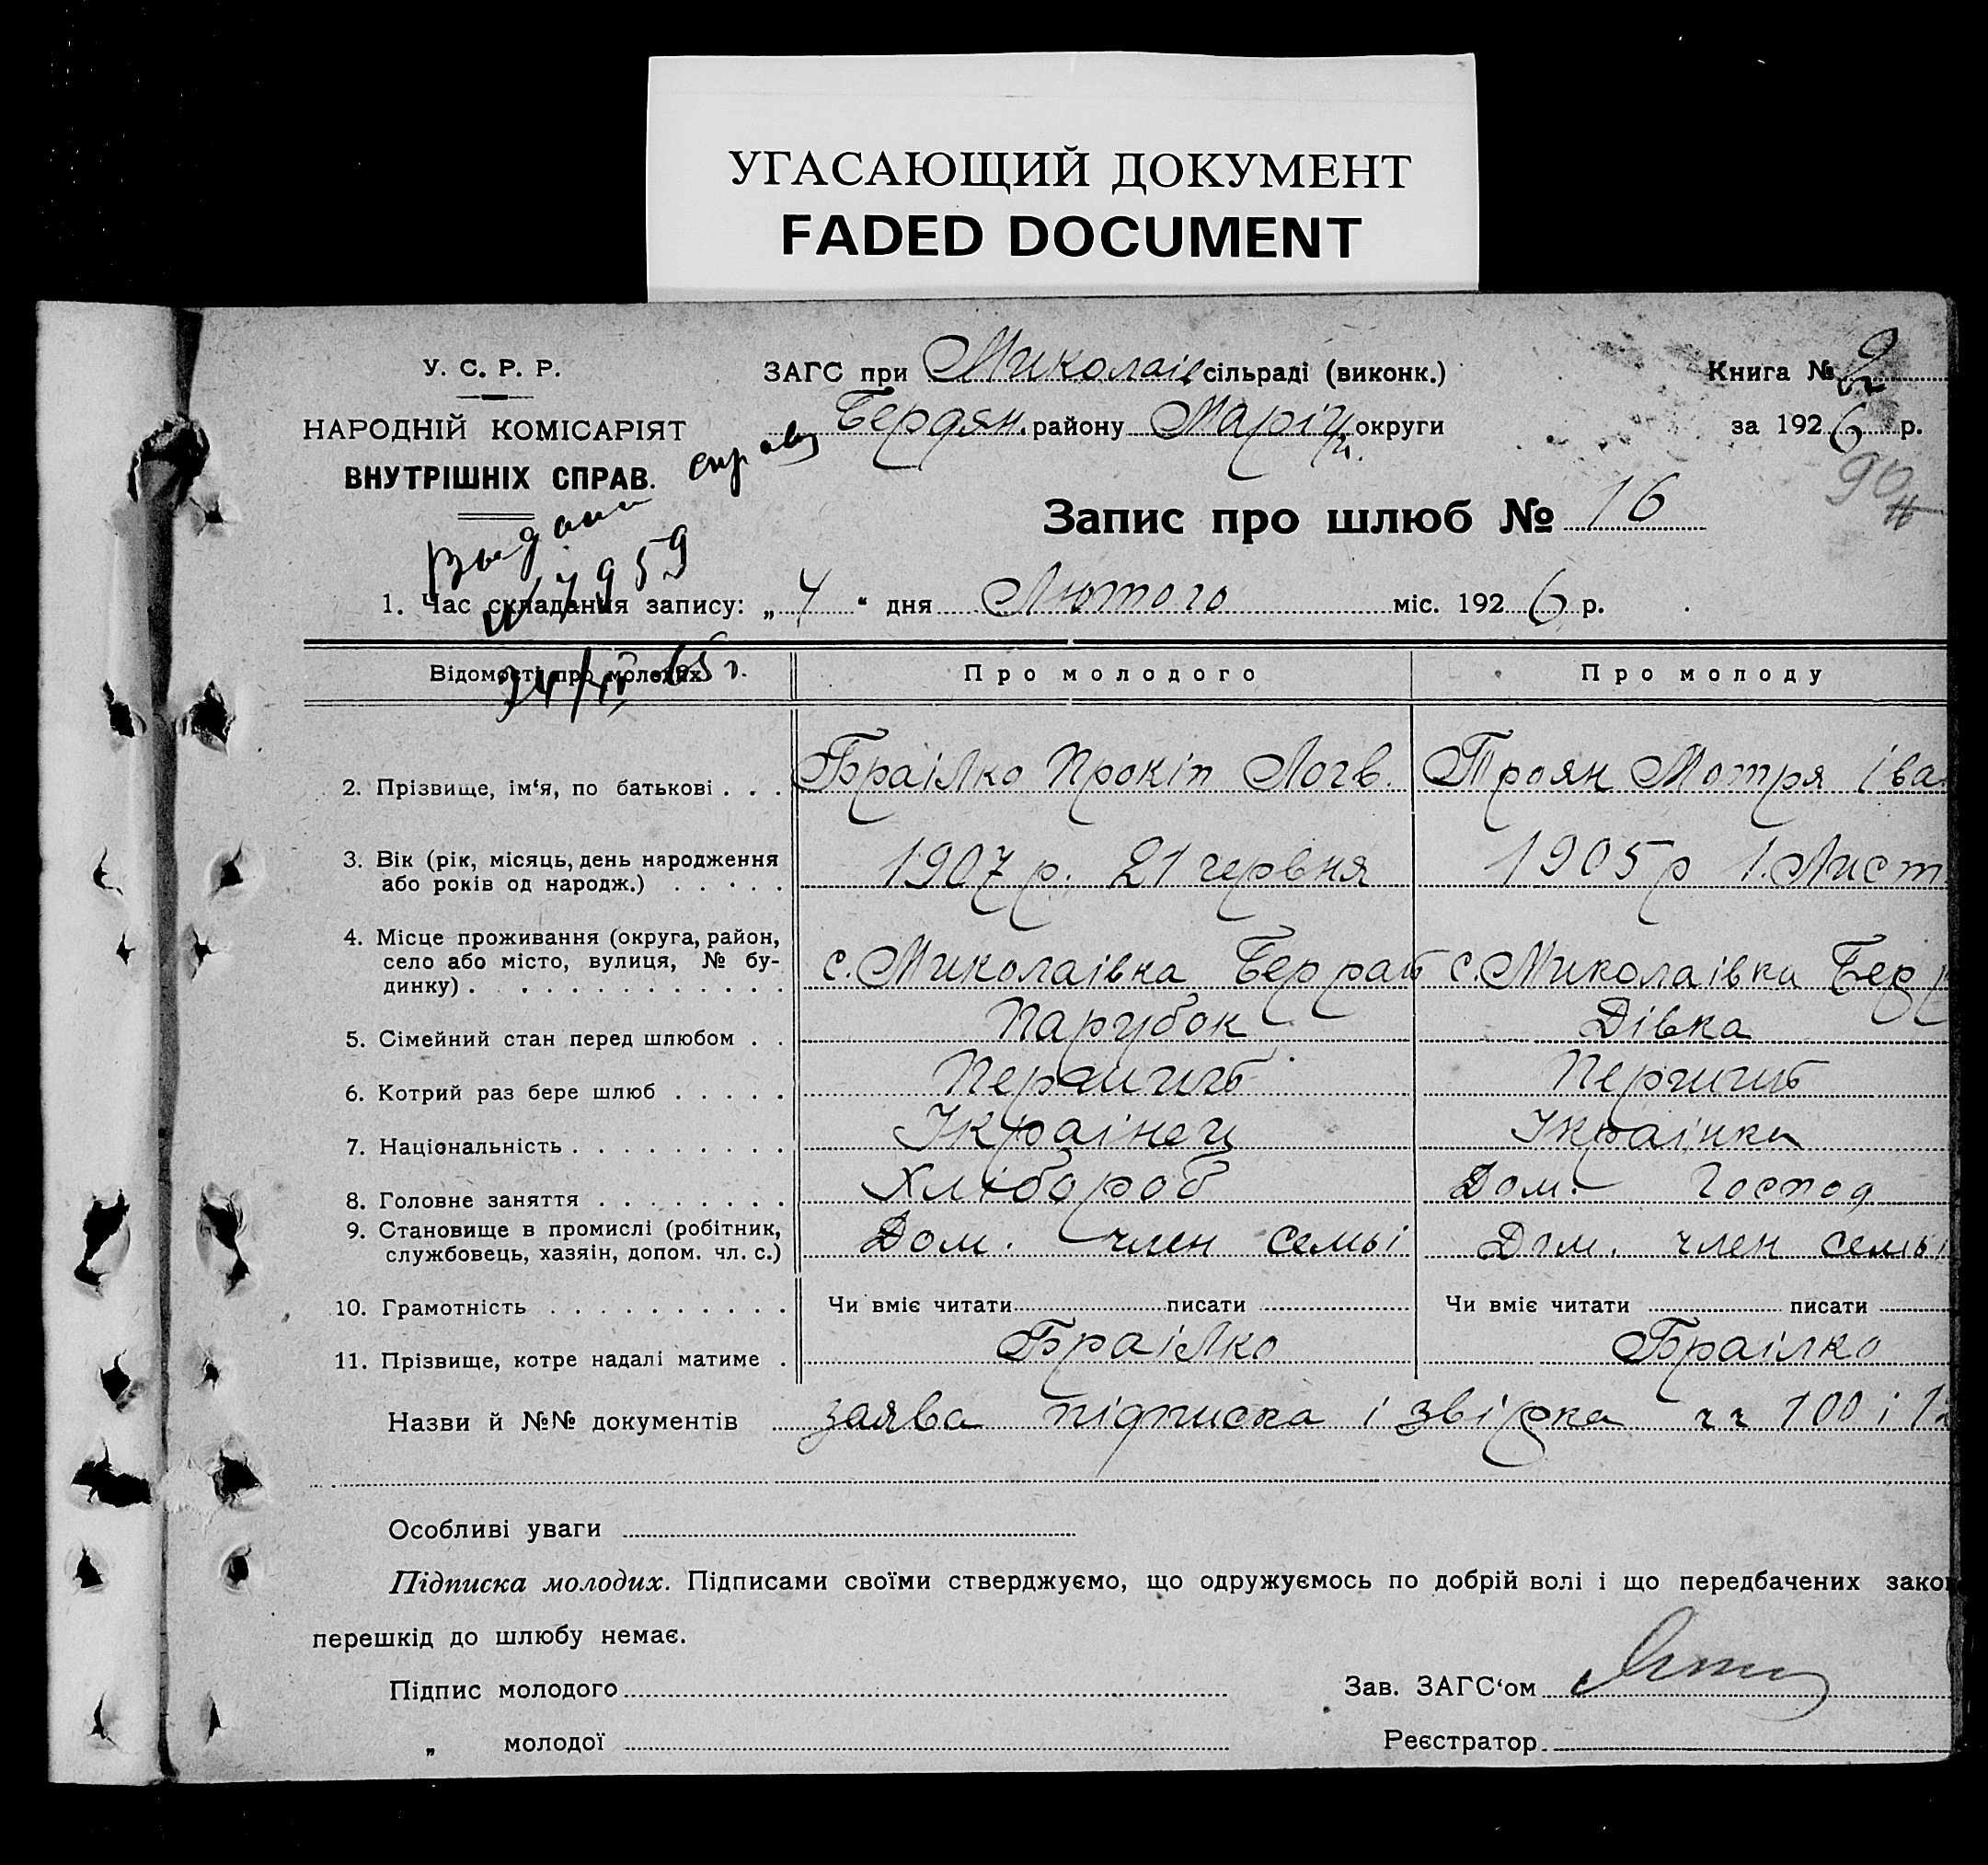 УГАСАЮЩИЙ ДОКУМЕНТ
FADED DOCUMENT
У. С. Р. Р.
НАРОДНІЙ КОМІСАРІЯТ
ВНУТРІШНІХ СПРАВ.
ЗАГС при Миколаів сільраді (виконк.)
Бердян. району Маріуп. округи
Книга № 2
за 1926 р.
Запис про шлюб № 16
1. Час складання запису: „ 4 “ дня Лютого міс. 1926 р.
Відомості про молодих
Про молодого
Про молоду
2. Прізвище, ім‘я, по батькові . . . Браілко Прокіп Логв. Троян Мотря Іва
3. Вік (рік, місяць, день народження
або років од народж.) . . . . . 1907 р. 21 червня 1905 р 1. Лист
4. Місце проживання (округа, район,
село або місто, вулиця, № бу-
динку) . . . . . . . . . . . . с. Миколаівка с. Миколаівка
5. Сімейний стан перед шлюбом . . Парубок Дівка
6. Котрий раз бере шлюб . . . . .
7. Національність . . . . . . . . . Украінец Украінка
8. Головне заняття . . . . . . . . Хлібороб Дом. Господ
9. Становище в промислі (робітник,
службовець, хазяїн, допом. чл. с.) Дом. член семьі Дом. член семьі
10. Грамотність . . . . . . . . . . Чи вміє читати писати Чи вміє читати писати
11. Прізвище, котре надалі матиме . Браілко Браілко
Назви й №№ документів заява підписка і звірка чч 100 і
Особливі уваги
Підписка молодих. Підписами своїми стверджуємо, що одружуємось по добрій волі і що передбачених зако
перешкід до шлюбу немає.
Підпис молодого
Зав. ЗАГС‘ом
„ молодої
Реєстратор